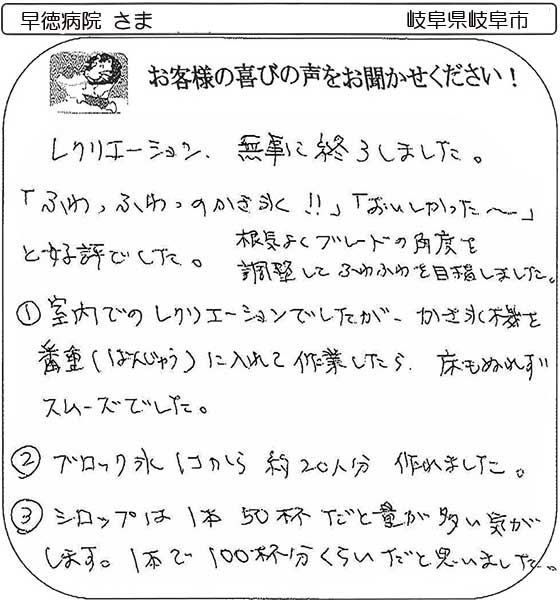 早徳病院 さま 岐阜県岐阜市
お客様の喜びの声をお聞かせください！
レクリエーション、無事に終了しました。
「ふわっふわっのかき氷!!」「おいしかった〜」
と好評でした。 根気よくブレードの角度を
調整してふわふわを目指しました。
① 室内でのレクリエーションでしたが、かき氷機を
番重(ばんじゅう)に入れて作業したら、床もぬれず
スムーズでした。
② ブロック氷1コから約20人分 作れました。
③ シロップは1本50杯だと量が多い気が
します。1本で100杯分くらいだと思いました。